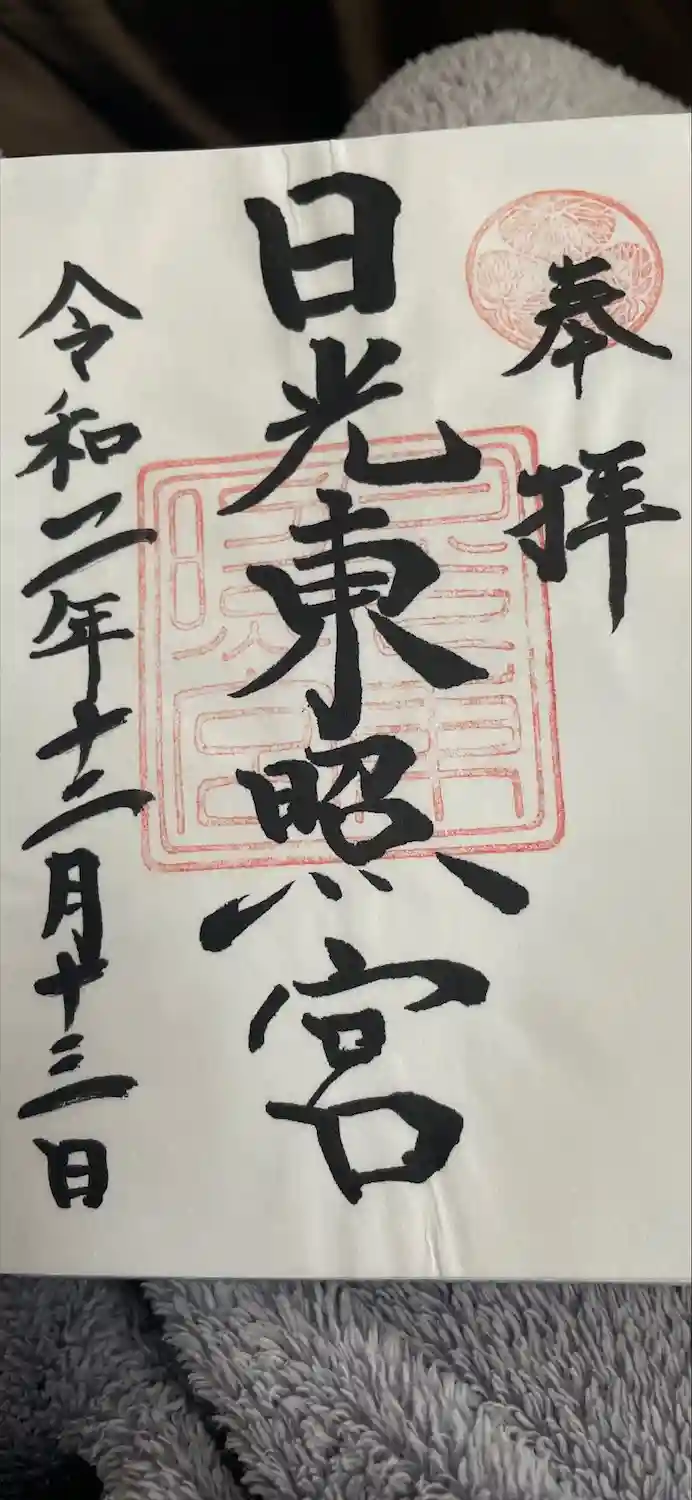 奉拝
日光東照宮
令和二年十二月十三日